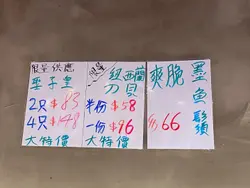 限量供應
瀨子皇
2只$83
4只$148
大特價
紐蘭
刀貝
半份$58
一份$96
大特價
爽脆
墨魚鬚
66